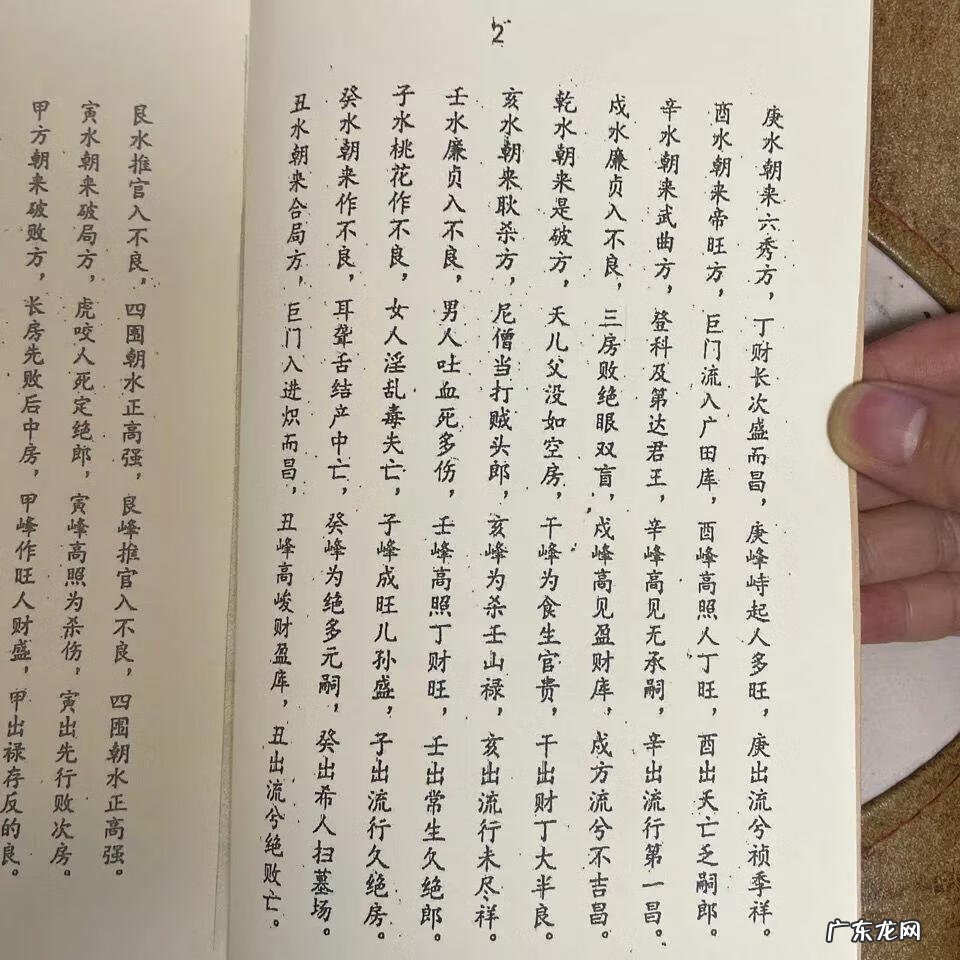 2
庚水朝来六秀方，丁财长次盛而昌，庚峰峙起人多旺，庚出流兮祯季祥。
酉水朝来帝旺方，巨门流入广田库，酉峰高照人丁旺，酉出夭亡乏嗣郎。
辛水朝来武曲方，登科及第达君王，辛峰高见无承嗣，辛出流行第一昌。
戍水廉贞入不良，三房败绝眼双盲，戍峰高见盈财库，戍方流兮不吉昌。
乾水朝来是破方，夭儿父没如空房，干峰为食生官贵，干出财丁大半良。
亥水朝来耿杀方，尼僧当打贼头郎，亥峰为杀壬山禄，亥出流行未尽祥。
壬水廉贞入不良，男人吐血死多伤，壬峰高照丁财旺，壬出常生久绝郎。
子水桃花作不良，女人淫乱毒夫亡，子峰成旺儿孙盛，子出流行久绝房。
癸水朝来作不良，耳聋舌结产中亡，癸峰为绝多元嗣，癸出希人扫墓场。
丑水朝来合局方，巨门入进炽而昌，丑峰高峻财盈库，丑出流兮绝败亡。
艮水推官入不良，四围朝水正高强，艮峰推官入不良，四围朝水正高强。
寅水朝来破局方，虎咬人死定绝郎，寅峰高照为杀伤，寅出先行败次房。
甲方朝来破败方，长房先败后中房，甲峰作旺人财盛，甲出禄存反的良。
广东龙网